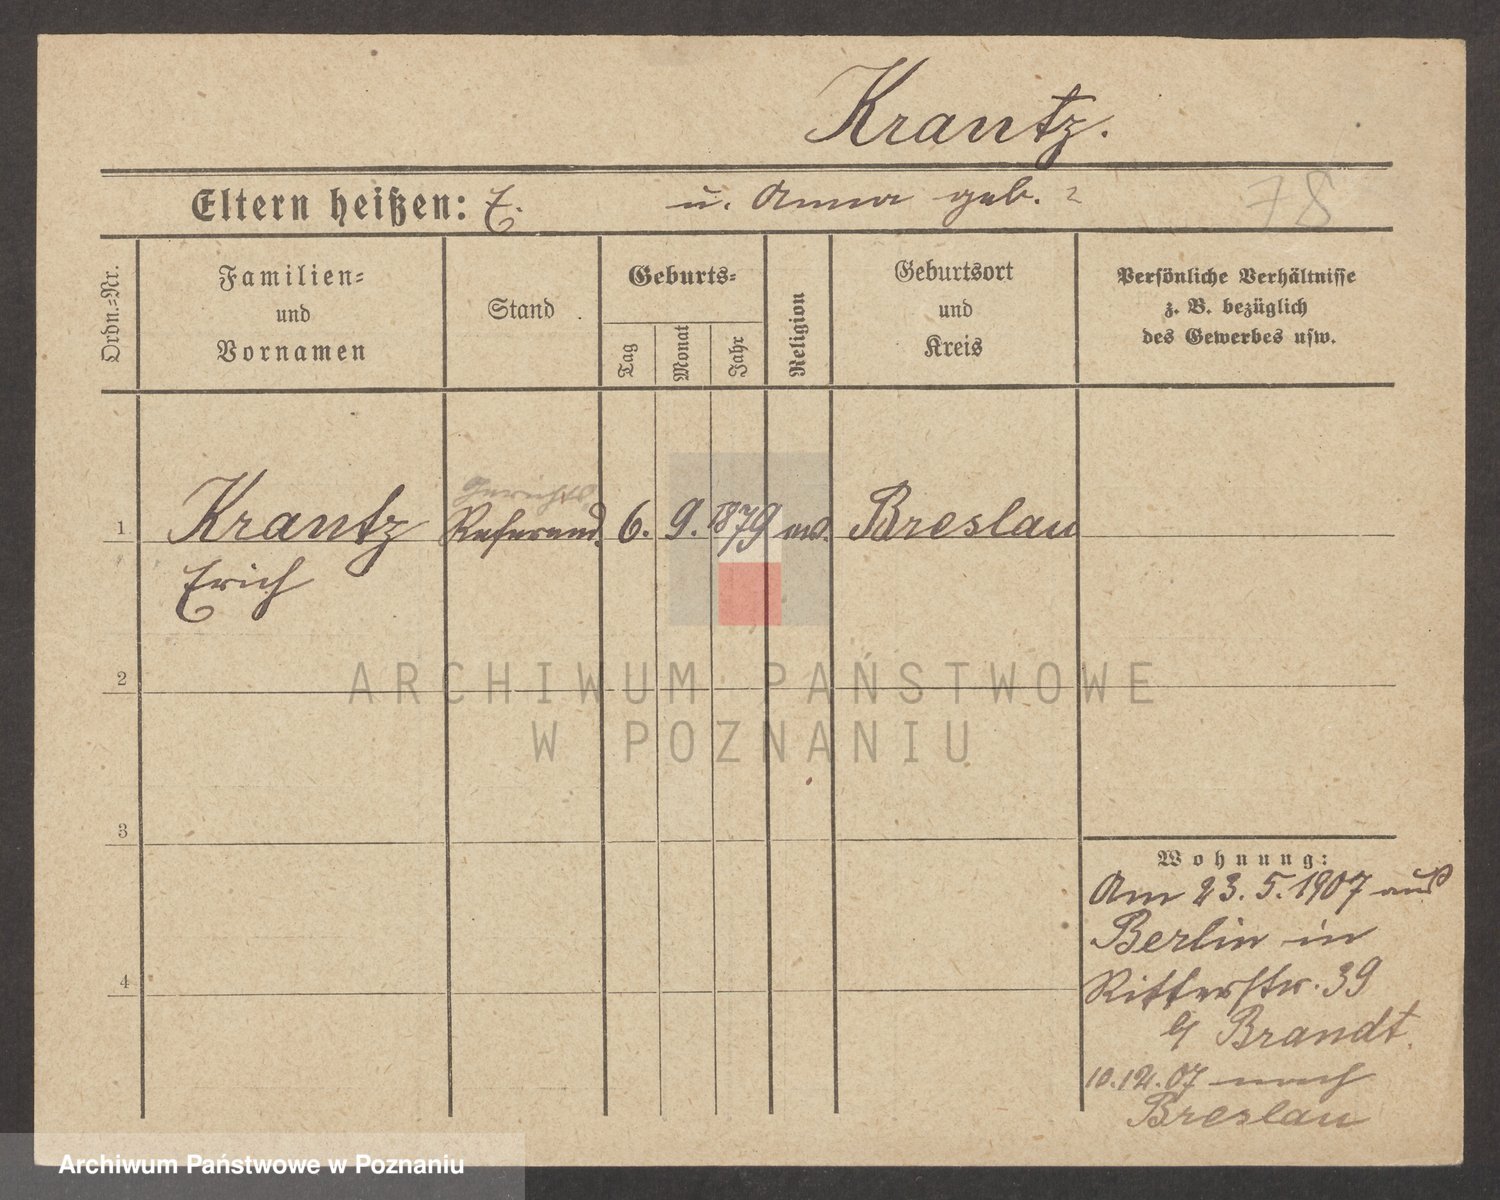 Krantz.
Eltern heißen: E. u. Anna geb. ?
78
Ordn.=Nr.
Familien=
und
Vornamen
Stand
Geburts=
Tag
Monat
Jahr
Religion
Geburtsort
und
Kreis
Persönliche Verhältnisse
z. B. bezüglich
des Gewerbes usw.
Gerichts
1 Krantz Referend. 6. 9. 1879 Breslau
Erich
2
ARCHIWUM PAŃSTWOWE
W POZNANIU
3
Wohnung:
Am 23.5.1907 aus
Berlin in
4
Ritterstr. 39
b/ Brandt.
10.12.07 nach
Breslau
Archiwum Państwowe w Poznaniu